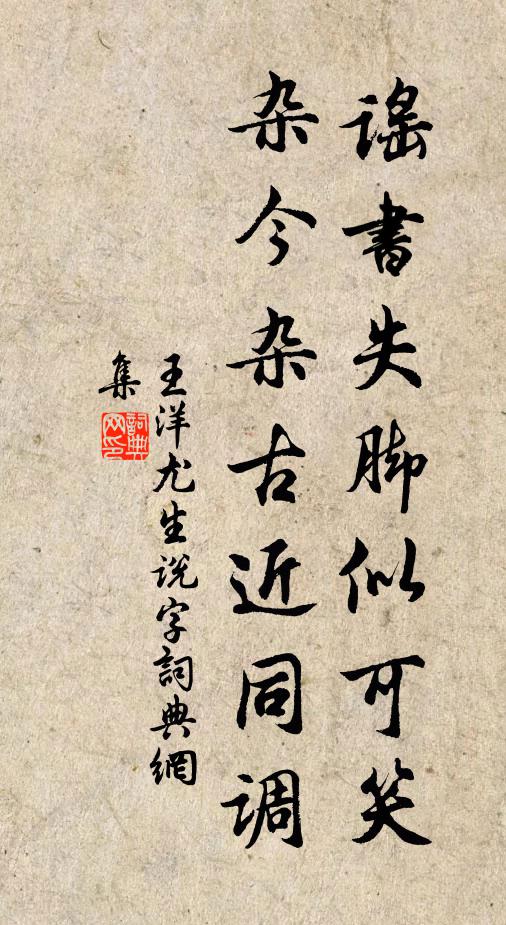 谣書失脚似可笑
杂今杂古近同调
王洋尤生说字詞典網
集
詞典
网印